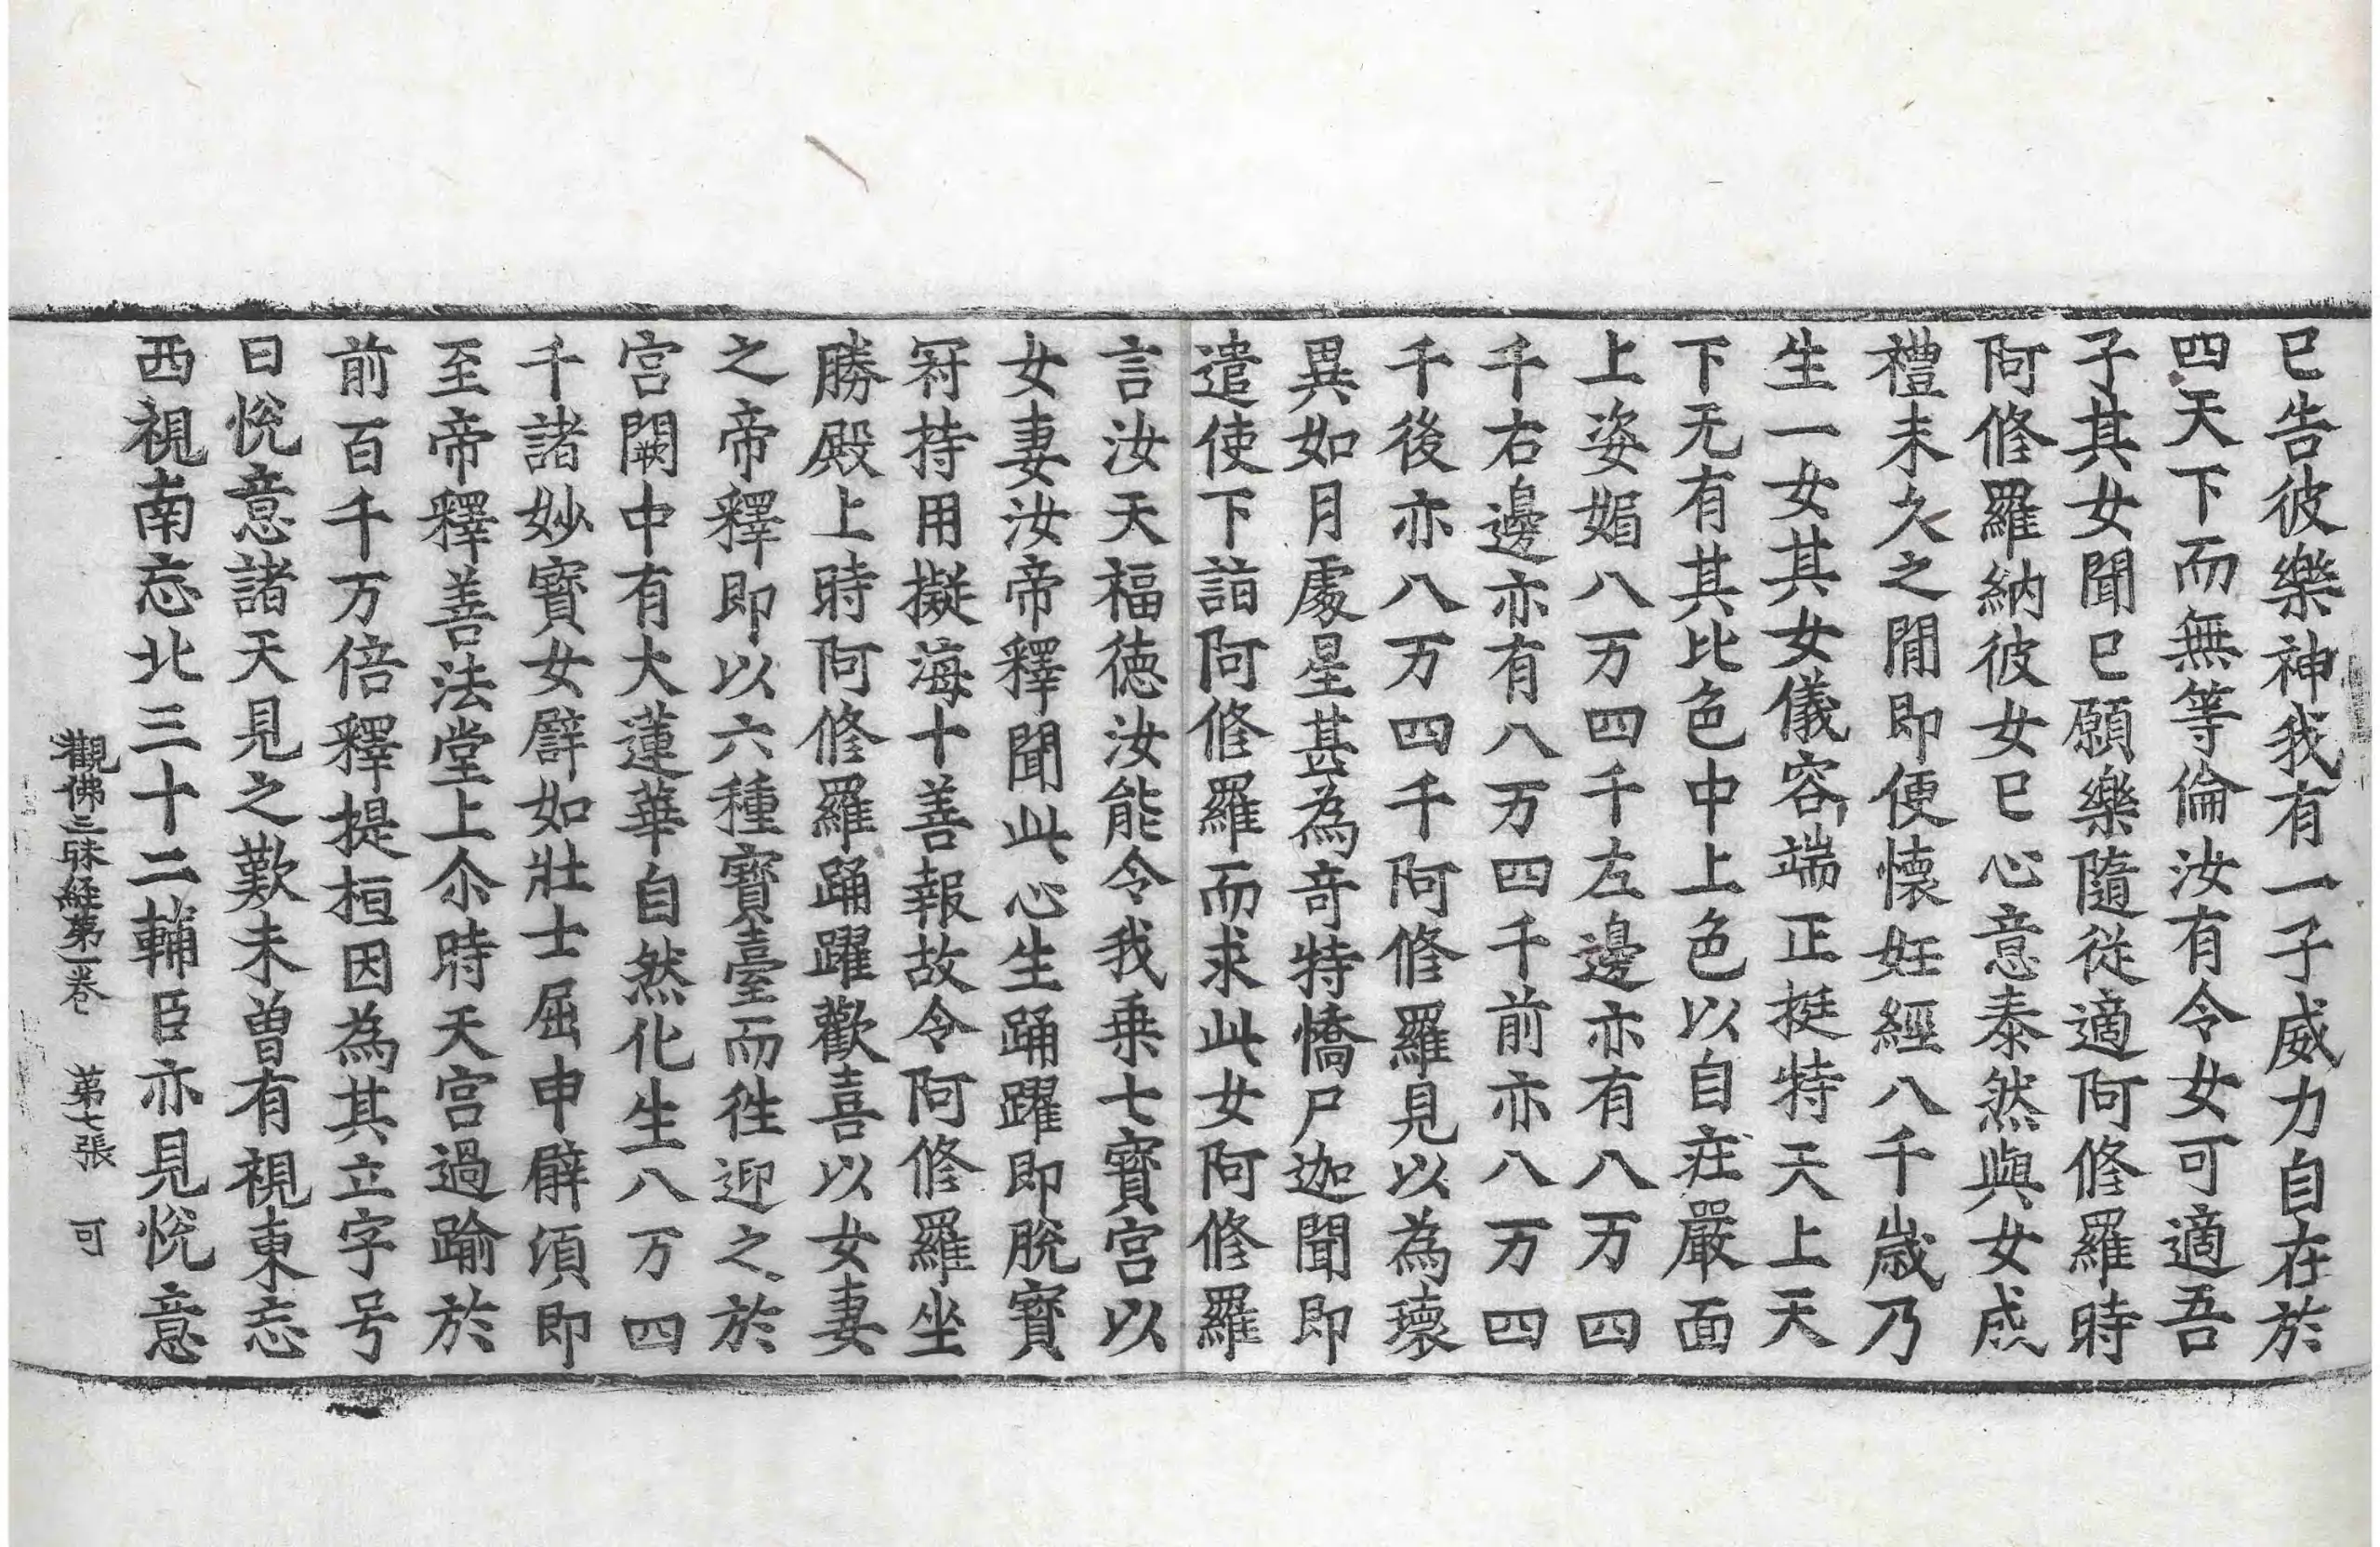 已告彼樂神我有一子威力自在於
四天下而無等倫汝有令女可適吾
子其女聞已願樂隨從適阿修羅時
阿修羅納彼女已心意泰然與女成
禮未久之閒即便懷妊經八千歲乃
生一女其女儀容端正挺特天上天
下无有其比色中上色以自莊嚴面
上姿媚八万四千左邊亦有八万四
千右邊亦有八万四千前亦八万四
千後亦八万四千阿修羅見以為瓌
異如月處星甚為奇特憍尸迦聞即
遣使下詣阿修羅而求此女阿修羅
言汝天福德汝能令我乗七寶宮以
女妻汝帝釋聞此心生踊躍即脫寶
冠持用擬海十善報故令阿修羅坐
勝殿上時阿修羅踊躍歡喜以女妻
之帝釋即以六種寶臺而往迎之於
宮闕中有大蓮華自然化生八万四
千諸妙寶女譬如壯士屈申臂湏即
至帝釋善法堂上尒時天宮過踰於
前百千万倍釋提桓因為其立字号
曰悅意諸天見之歎未曾有視東忘
西視南忘北三十二輔臣亦見悅意
觀佛三昧經第一卷 第七張 可